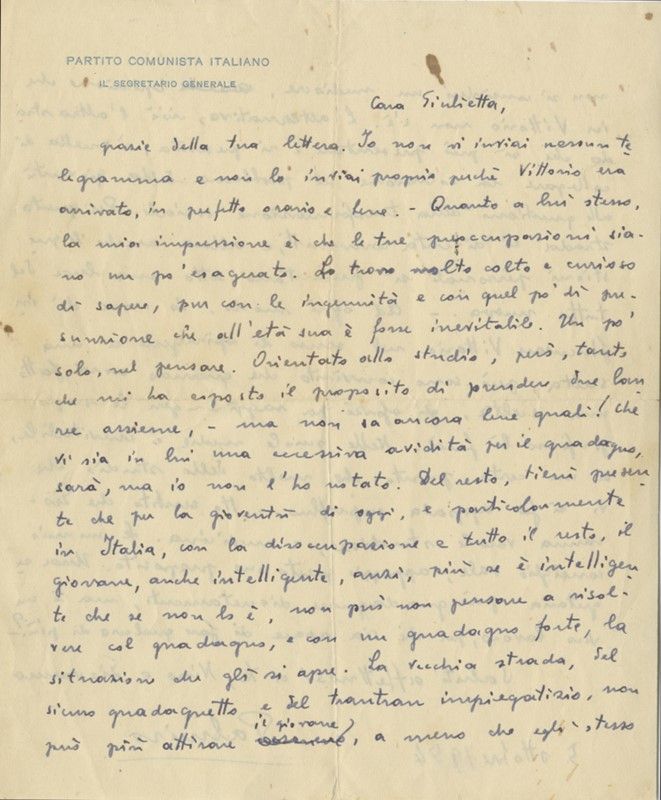 PARTITO COMUNISTA ITALIANO
IL SEGRETARIO GENERALE
Cara Giulietta,
grazie della tua lettera. Io non vi inviai nessun te
legramma e non lo inviai proprio perchè Vittorio era
arrivato, in perfetto orario e bene. - Quanto a lui stesso,
la mia impressione è che le tue preoccupazioni sia-
no un po' esagerate. Lo trovo molto colto e curioso
di sapere, pur con le ingenuità e con quel po' di pre-
sunzione che all'età sua è forse inevitabile. Un po'
solo, nel pensare. Orientato allo studio, però, tanto
che mi ha esposto il proposito di prendere due lau
ree assieme, - ma non sa ancora bene quali! Che
vi sia in lui una eccessiva avidità per il guadagno,
sarà, ma io non l'ho notato. Del resto, tieni presen-
te che per la gioventù di oggi, e particolarmente
in Italia, con la disoccupazione e tutto il resto, il
giovane, anche intelligente, anzi, più se è intelligen
te che se non lo è, non può non pensare a risol-
vere col guadagno, e con un guadagno forte, la
situazione che gli si apre. La vecchia strada, del
sicuro guadagnetto e del trantran impiegatizio, non
può più attirare il giovane, a meno che egli stesso